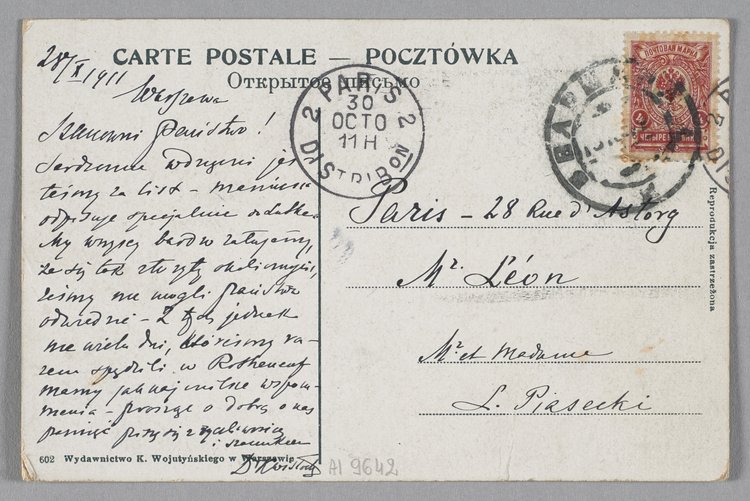 CARTE POSTALE — POCZTÓWKA
Открытое письмо
28/X 1911
Warszawa
Szanowni Państwo!
Serdecznie wdzięczni jes
teśmy za list –
odpisuje specjalnie
My wszyscy bardzo żałujemy,
że się tak złożyły okoliczności,
żeśmy nie mogli Państwa
odwiedzić – Z tych jednak
nie wielu dni, któreśmy ra-
zem spędzili w Rotheneuf
mamy jak naj milsze wspom-
nienia – prosząc o dobrą o nas
pamięć
i szacunkiem
PARIS 2
30
OCTO
11 H
DISTRIBON
ПОЧТОВАЯ МАРКА
4
Paris – 28 Rue d'Astorg
Mr. Léon
Mr et Madame
L. Piasecki
Reprodukcja zastrzeżona
602 Wydawnictwo K. Wojutyńskiego w Warszawie
AI 9642